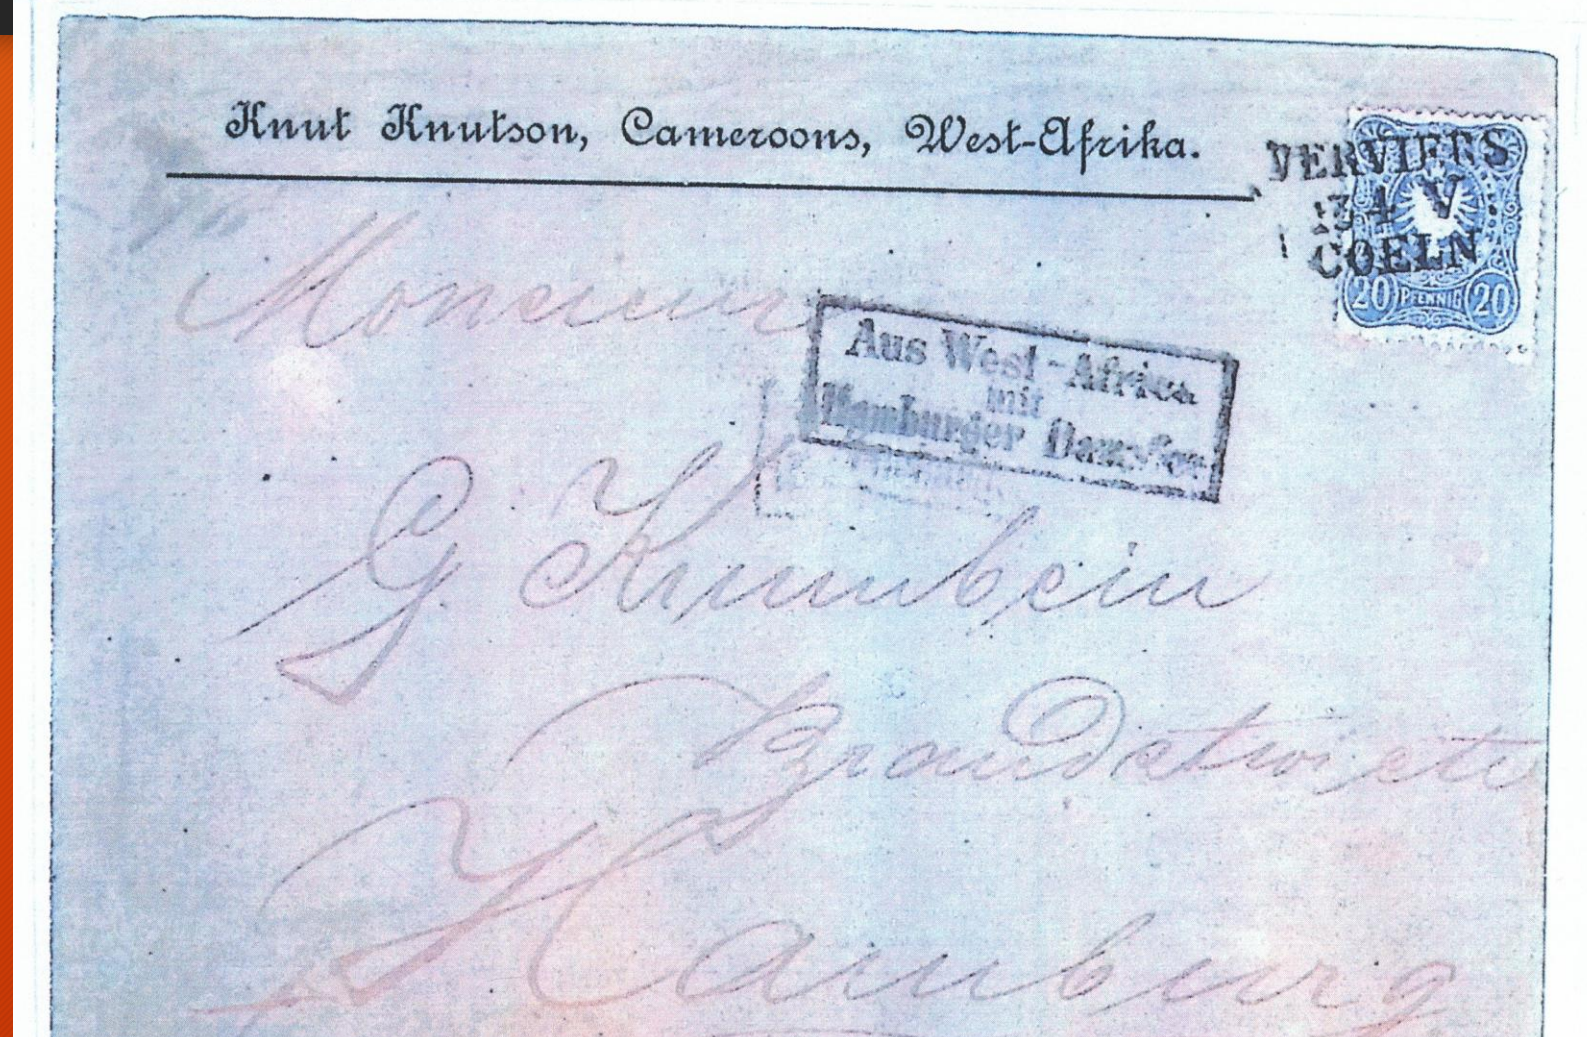 Knut Knutson, Cameroons, West-Afrika.
VERVIERS
4 V
COELN
20 PFENNIG 20
Monsieur
Aus West-Africa
mit
Hamburger Dampfer
G. Krumbein
Brandstwiete
Hamburg